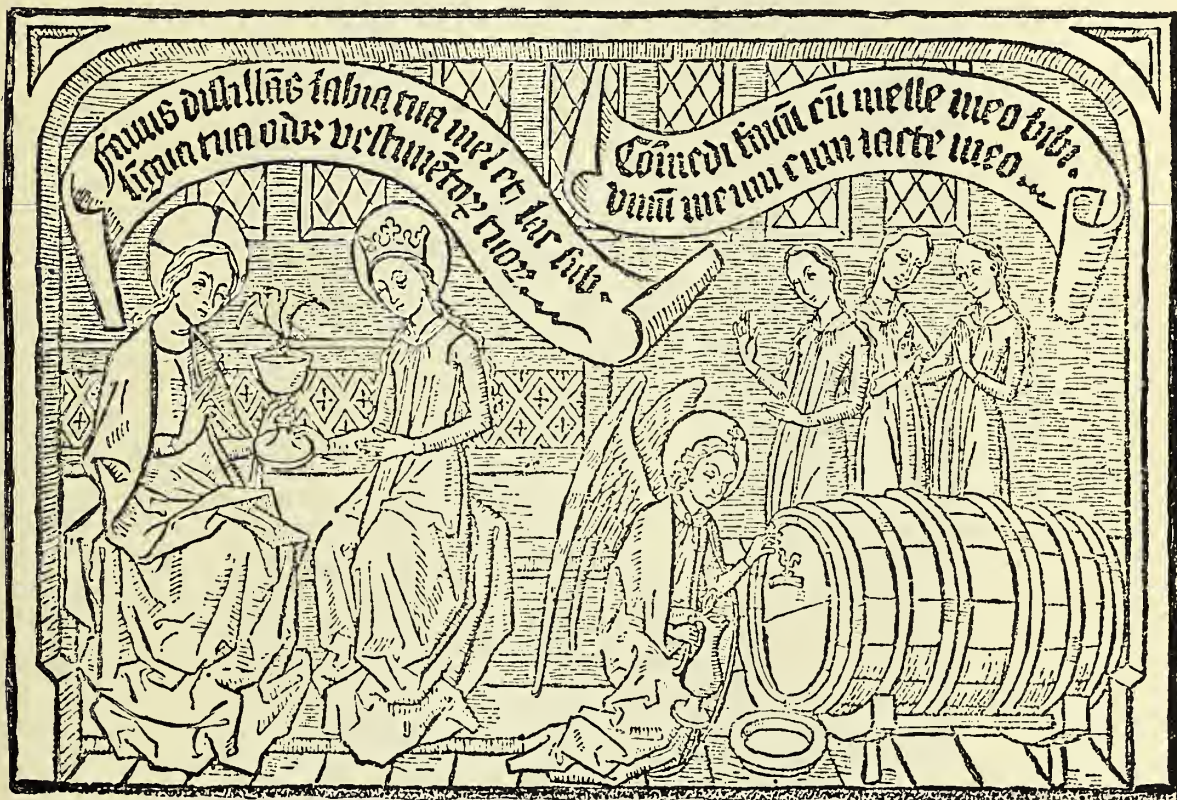 fauus distillās labia tua mel et lac sub.
līgua tua odoꝛ vestimētoꝝ tuoꝝ.
Cōmedi fauū cū melle meo bibi.
vinū meum cum lacte meo